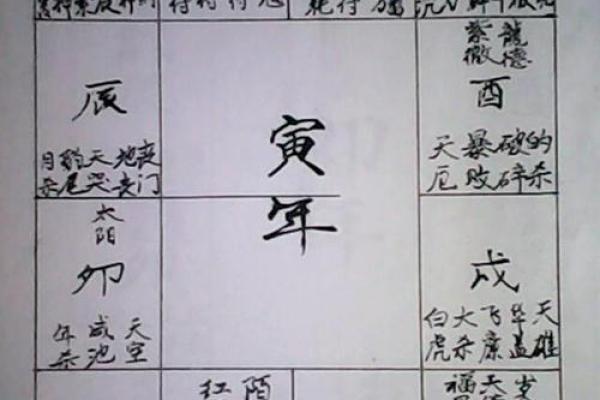 紫微
龍德
辰
寅年
酉
月杀
豹尾
天哭
地丧
丧门
天厄
暴败
破碎
的杀
太阳
卯
戌
年杀
咸池
天空
白虎
大杀
飞廉
华盖
天雄
红
陌
福
天